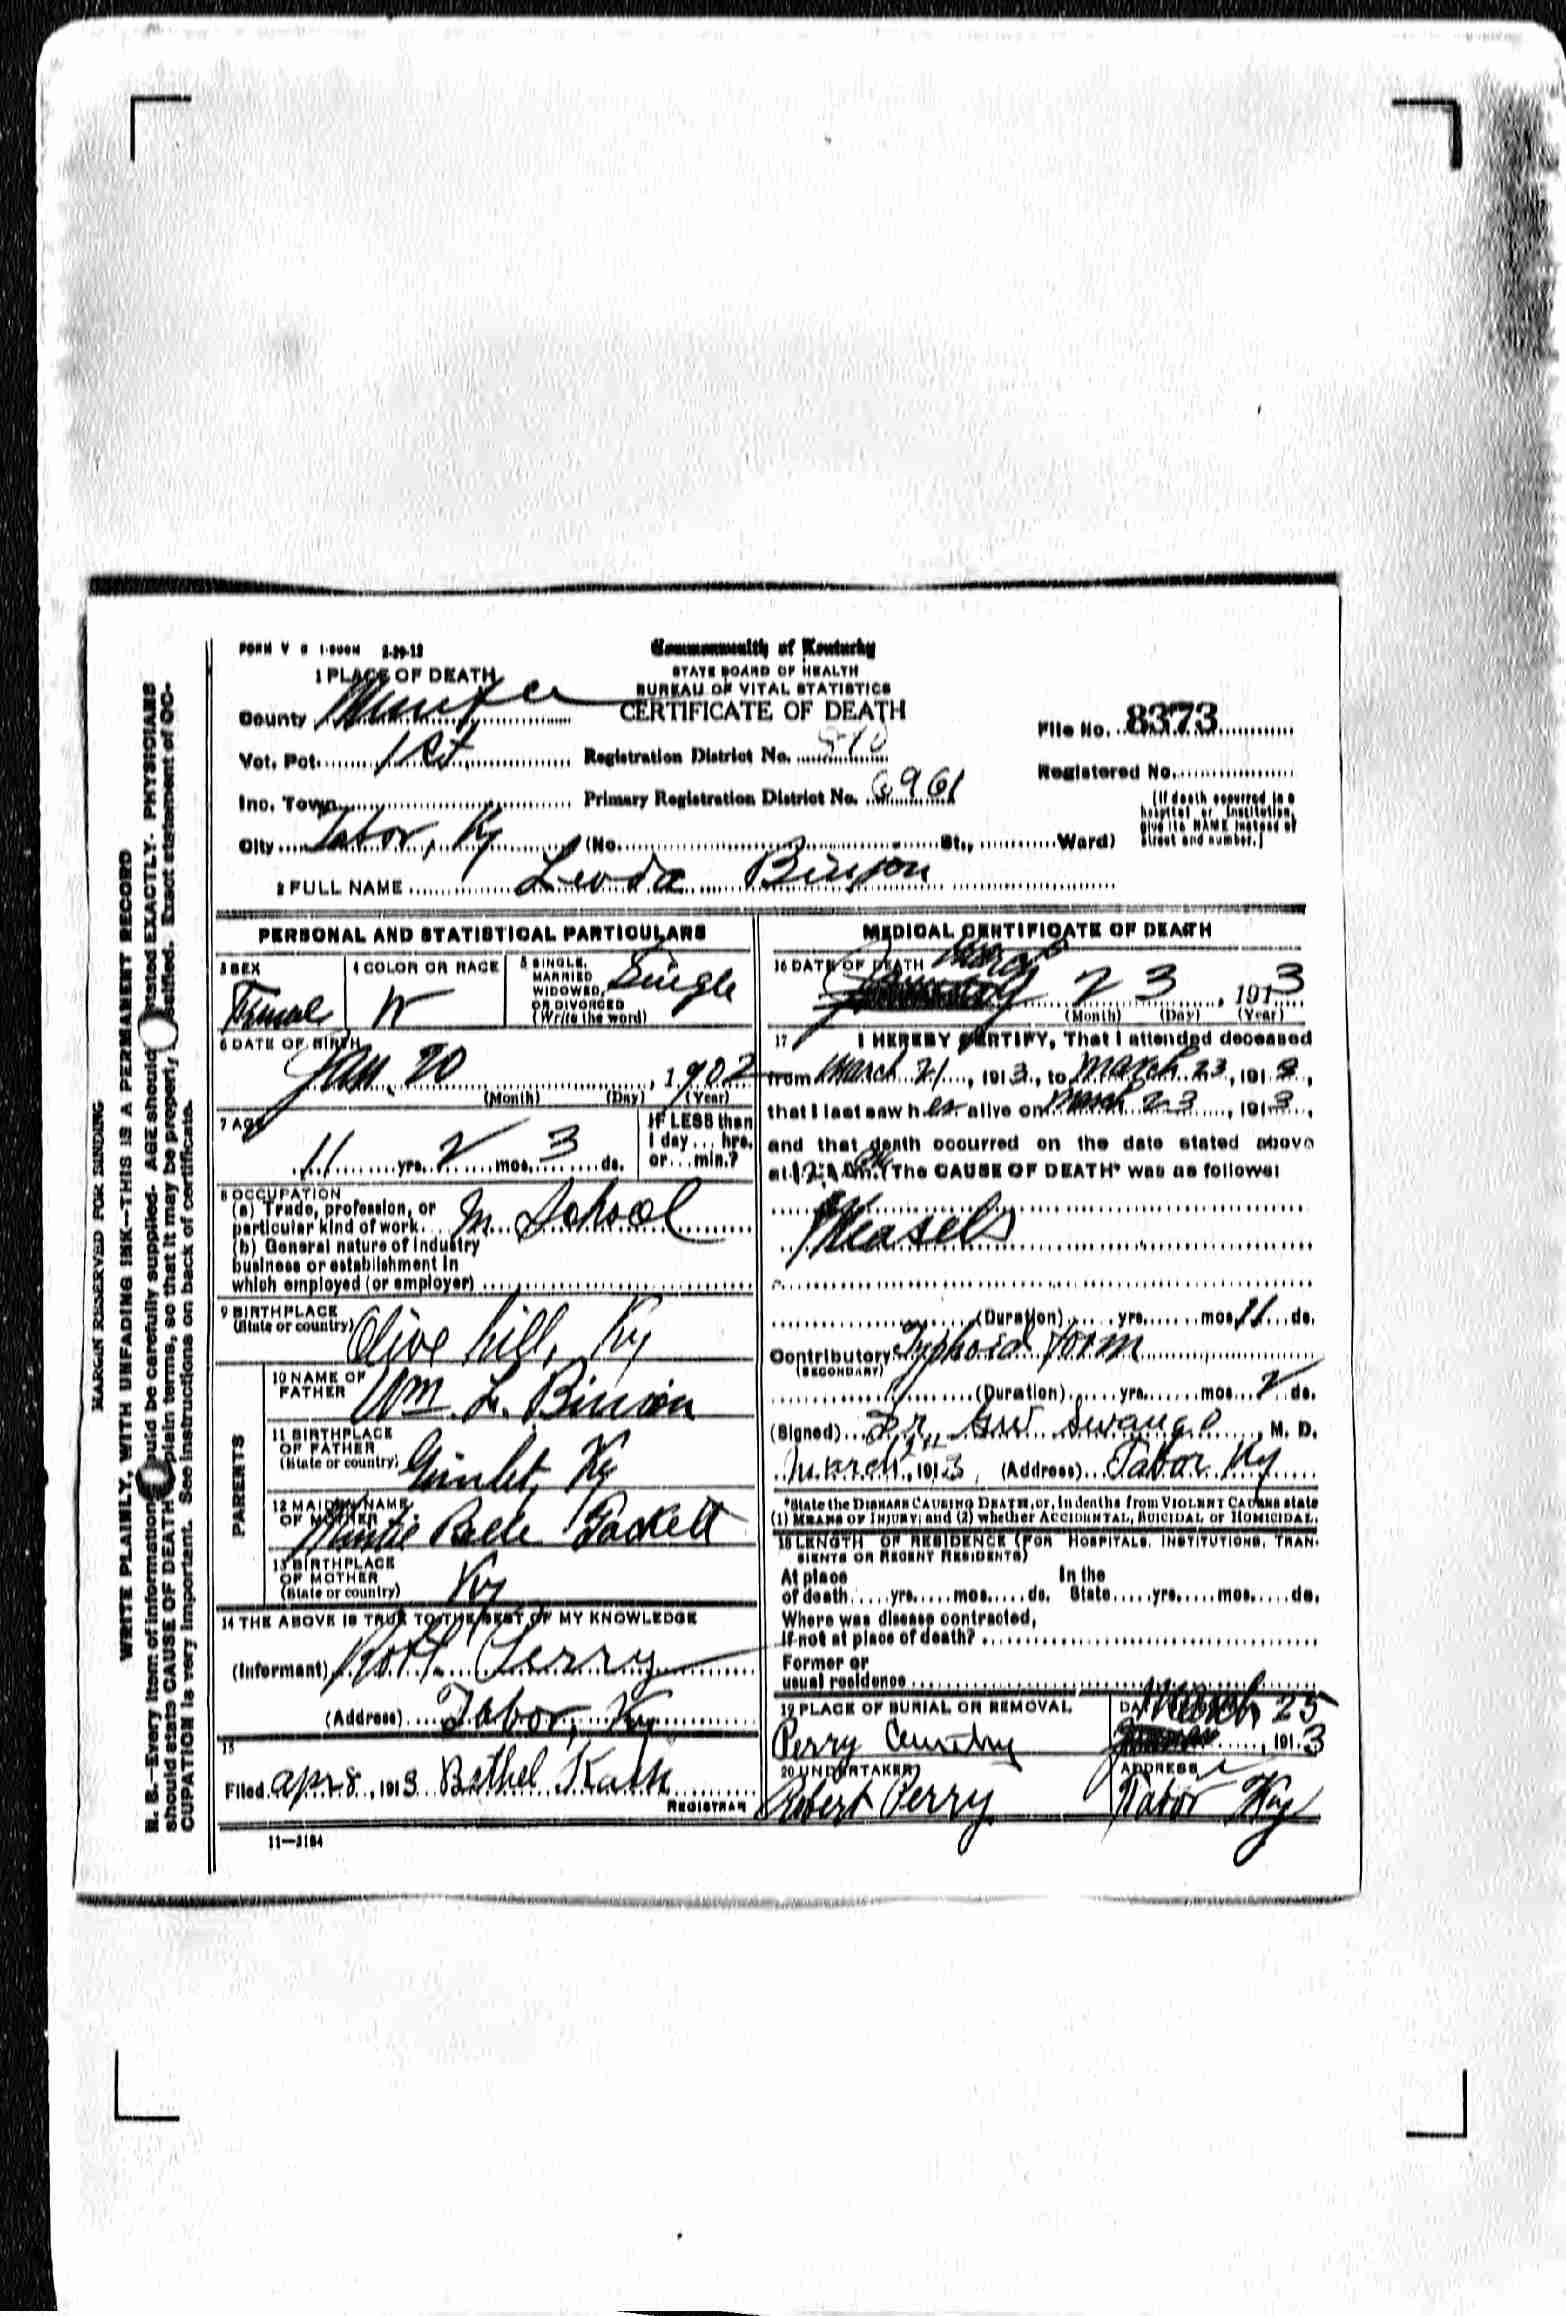 FORM V S 1-500M 2-29-12
Commonwealth of Kentucky
STATE BOARD OF HEALTH
BUREAU OF VITAL STATISTICS
CERTIFICATE OF DEATH
1 PLACE OF DEATH
County
Vot. Pct. 1st Registration District No.
File No. 8373
Inc. Town Primary Registration District No. 6961
Registered No.
City Tabor, Ky (No. St., Ward)
(If death occurred in a hospital or institution, give its NAME instead of street and number.)
2 FULL NAME Leoda Binion
PERSONAL AND STATISTICAL PARTICULARS
3 SEX
Female
4 COLOR OR RACE
W
5 SINGLE, MARRIED, WIDOWED, OR DIVORCED (Write the word)
Single
6 DATE OF BIRTH
Jan. 20, 1902
(Month) (Day) (Year)
7 AGE
11 yrs. 2 mos. 3 ds.
IF LESS than 1 day ... hrs. or ... min.?
8 OCCUPATION
(a) Trade, profession, or particular kind of work In School
(b) General nature of industry business or establishment in which employed (or employer)
9 BIRTHPLACE (State or country)
Olive hill, Ky
PARENTS
10 NAME OF FATHER
Wm. L. Binion
11 BIRTHPLACE OF FATHER (State or country)
Gimlet, Ky
12 MAIDEN NAME OF MOTHER
Belle Tackett
13 BIRTHPLACE OF MOTHER (State or country)
Ky
14 THE ABOVE IS TRUE TO THE BEST OF MY KNOWLEDGE
(Informant) Robt. Perry
(Address) Tabor, Ky
15
Filed Apr 8, 1913 Bethel Kash
REGISTRAR
11—3184
MEDICAL CERTIFICATE OF DEATH
16 DATE OF DEATH
March 23, 1913
(Month) (Day) (Year)
17 I HEREBY CERTIFY, That I attended deceased
from March 21, 1913, to March 23, 1913,
that I last saw her alive on March 23, 1913,
and that death occurred on the date stated above
at 12 m. The CAUSE OF DEATH* was as follows:
Measels
(Duration) yrs. mos. 11 ds.
Contributory Typhoid form
(SECONDARY)
(Duration) yrs. mos. 2 ds.
(Signed) Dr. Swango, M. D.
March, 1913 (Address) Tabor Ky
*State the DISEASE CAUSING DEATH, or, in deaths from VIOLENT CAUSES state
(1) MEANS OF INJURY; and (2) whether ACCIDENTAL, SUICIDAL or HOMICIDAL.
18 LENGTH OF RESIDENCE (FOR HOSPITALS, INSTITUTIONS, TRANSIENTS OR RECENT RESIDENTS)
At place of death yrs. mos. ds. In the State yrs. mos. ds.
Where was disease contracted,
If not at place of death?
Former or
usual residence
19 PLACE OF BURIAL OR REMOVAL
Perry Cemetery
March 25, 1913
20 UNDERTAKER
Robert Perry
ADDRESS
Tabor Ky
MARGIN RESERVED FOR BINDING
WRITE PLAINLY, WITH UNFADING INK—THIS IS A PERMANENT RECORD
N. B.—Every item of information should be carefully supplied. AGE should be stated EXACTLY. PHYSICIANS
should state CAUSE OF DEATH in plain terms, so that it may be properly classified. Exact statement of OC-
CUPATION is very important. See instructions on back of certificate.